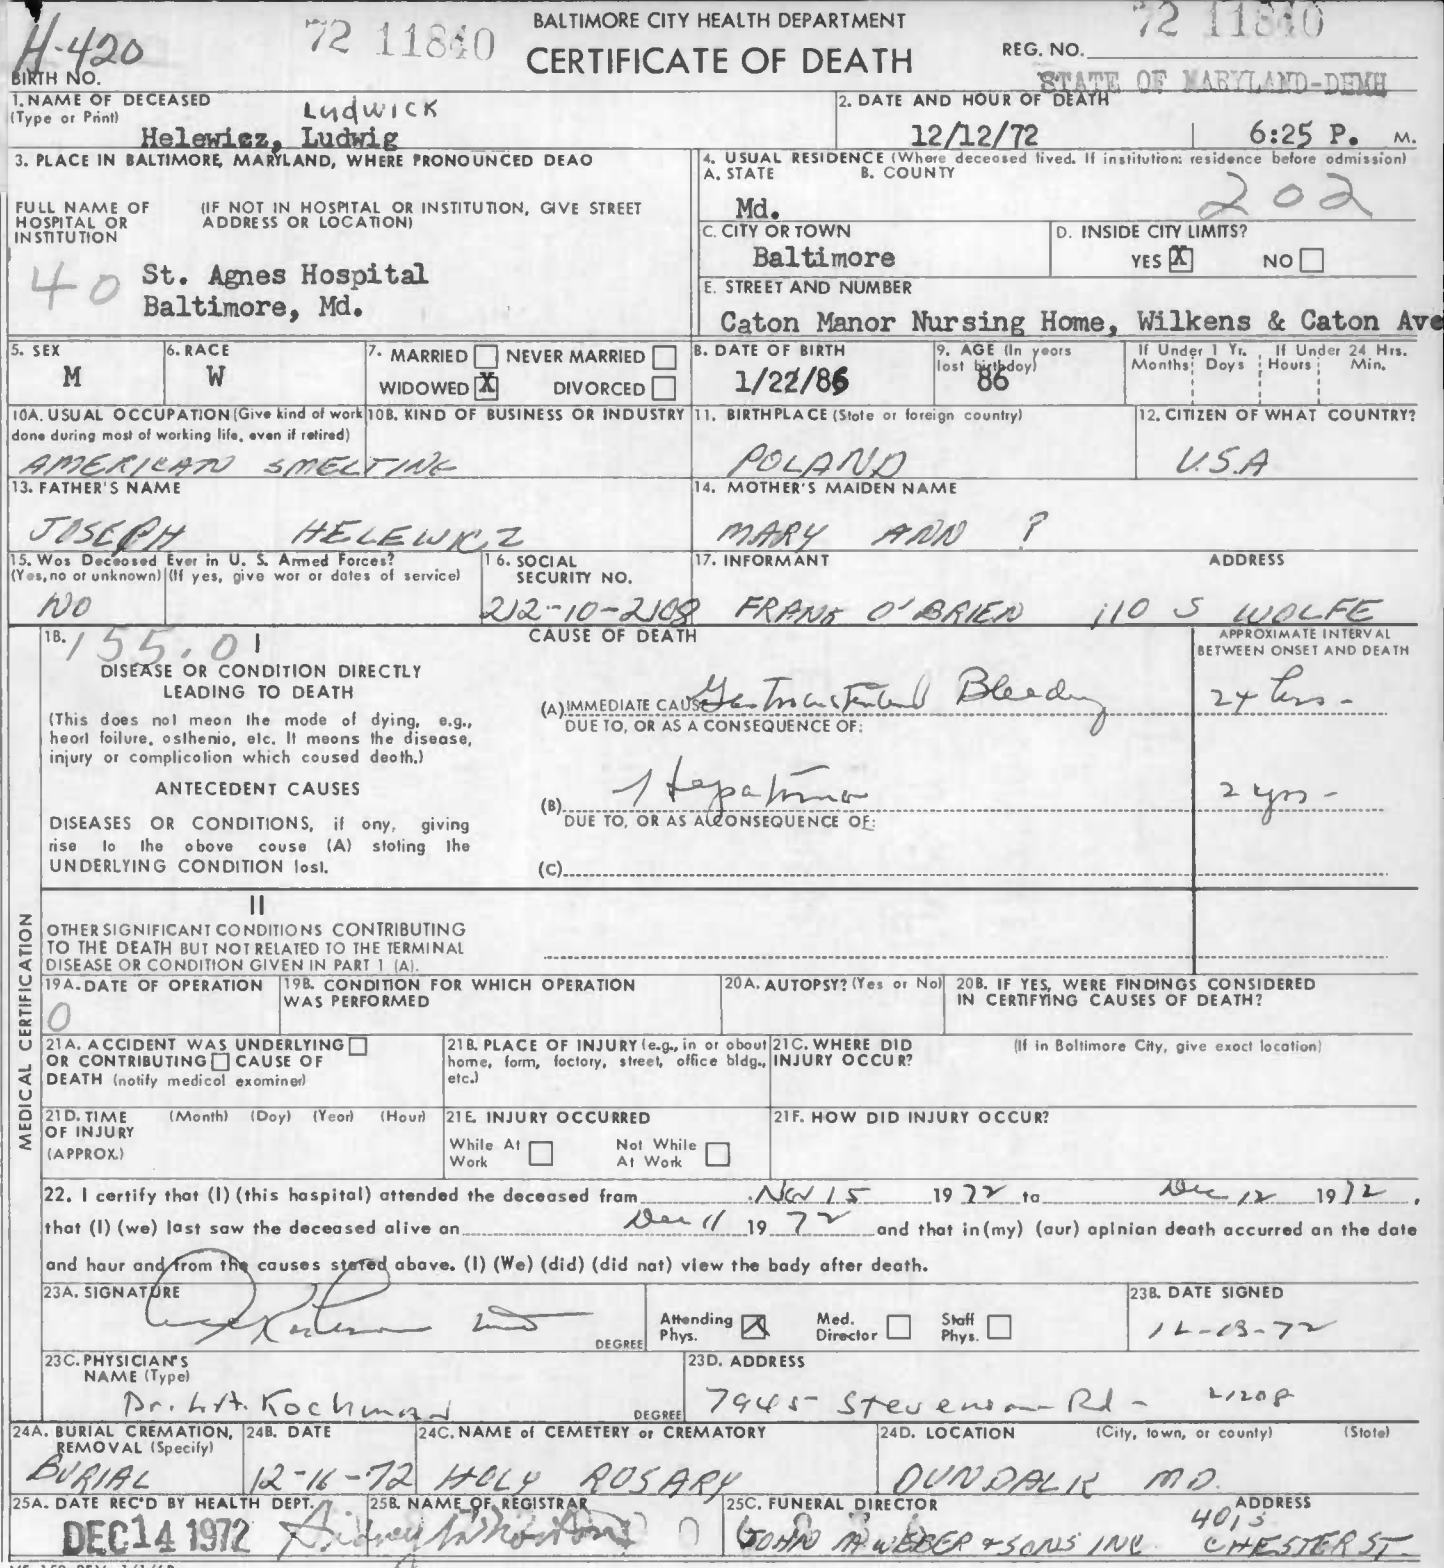 H-420
72 11840
BALTIMORE CITY HEALTH DEPARTMENT
CERTIFICATE OF DEATH
72 11840
REG. NO.
STATE OF MARYLAND-DEMH
BIRTH NO.
1. NAME OF DECEASED
(Type or Print)
Ludwick
Helewicz, Ludwig
2. DATE AND HOUR OF DEATH
12/12/72 6:25 P. M.
3. PLACE IN BALTIMORE, MARYLAND, WHERE PRONOUNCED DEAD
FULL NAME OF HOSPITAL OR INSTITUTION
(IF NOT IN HOSPITAL OR INSTITUTION, GIVE STREET ADDRESS OR LOCATION)
40
St. Agnes Hospital
Baltimore, Md.
4. USUAL RESIDENCE (Where deceased lived. If institution: residence before admission)
A. STATE B. COUNTY
Md. 202
C. CITY OR TOWN
Baltimore
D. INSIDE CITY LIMITS?
YES X NO
E. STREET AND NUMBER
Caton Manor Nursing Home, Wilkens & Caton Ave
5. SEX
M
6. RACE
W
7. MARRIED NEVER MARRIED
WIDOWED X DIVORCED
8. DATE OF BIRTH
1/22/86
9. AGE (In years last birthday)
86
If Under 1 Yr. If Under 24 Hrs.
Months Days Hours Min.
10A. USUAL OCCUPATION (Give kind of work done during most of working life, even if retired)
10B. KIND OF BUSINESS OR INDUSTRY
AMERICAN SMELTING
11. BIRTHPLACE (State or foreign country)
POLAND
12. CITIZEN OF WHAT COUNTRY?
U.S.A
13. FATHER'S NAME
JOSEPH HELEWICZ
14. MOTHER'S MAIDEN NAME
MARY ANN ?
15. Was Deceased Ever in U. S. Armed Forces?
(Yes, no or unknown) (If yes, give war or dates of service)
NO
16. SOCIAL SECURITY NO.
212-10-2108
17. INFORMANT ADDRESS
FRANK O'BRIEN 110 S WOLFE
MEDICAL CERTIFICATION
18. 155.0 I
CAUSE OF DEATH
APPROXIMATE INTERVAL
BETWEEN ONSET AND DEATH
DISEASE OR CONDITION DIRECTLY
LEADING TO DEATH
(This does not mean the mode of dying, e.g.,
heart failure, asthenia, etc. It means the disease,
injury or complication which caused death.)
(A) IMMEDIATE CAUSE Gastrointestinal Bleeding 24 hrs-
DUE TO, OR AS A CONSEQUENCE OF:
ANTECEDENT CAUSES
DISEASES OR CONDITIONS, if any, giving
rise to the above cause (A) stating the
UNDERLYING CONDITION last.
(B) Hepatoma 2 yrs-
DUE TO, OR AS A CONSEQUENCE OF:
(C)
II
OTHER SIGNIFICANT CONDITIONS CONTRIBUTING
TO THE DEATH BUT NOT RELATED TO THE TERMINAL
DISEASE OR CONDITION GIVEN IN PART 1 (A).
19A. DATE OF OPERATION
0
19B. CONDITION FOR WHICH OPERATION WAS PERFORMED
20A. AUTOPSY? (Yes or No)
20B. IF YES, WERE FINDINGS CONSIDERED IN CERTIFYING CAUSES OF DEATH?
21A. ACCIDENT WAS UNDERLYING
OR CONTRIBUTING CAUSE OF
DEATH (notify medical examiner)
21B. PLACE OF INJURY (e.g., in or about
home, farm, factory, street, office bldg.,
etc.)
21C. WHERE DID INJURY OCCUR? (If in Baltimore City, give exact location)
21D. TIME OF INJURY (APPROX.) (Month) (Day) (Year) (Hour)
21E. INJURY OCCURRED
While At Work Not While At Work
21F. HOW DID INJURY OCCUR?
22. I certify that (I) (this hospital) attended the deceased from Nov 15 1972 to Dec 12 1972,
that (I) (we) last saw the deceased alive on Dec 11 1972 and that in (my) (our) opinion death occurred on the date
and hour and from the causes stated above. (I) (We) (did) (did not) view the body after death.
23A. SIGNATURE
DEGREE
Attending Phys. Med. Director Staff Phys.
23B. DATE SIGNED
12-13-72
23C. PHYSICIAN'S NAME (Type)
Dr. Kochman
DEGREE
23D. ADDRESS
7945 Stevenson Rd - 21208
24A. BURIAL CREMATION, REMOVAL (Specify)
BURIAL
24B. DATE
12-16-72
24C. NAME of CEMETERY or CREMATORY
HOLY ROSARY
24D. LOCATION (City, town, or county) (State)
DUNDALK MD.
25A. DATE REC'D BY HEALTH DEPT.
DEC 14 1972
25B. NAME OF REGISTRAR
25C. FUNERAL DIRECTOR ADDRESS
JOHN M WEBER & SONS INC 401 S CHESTER ST.